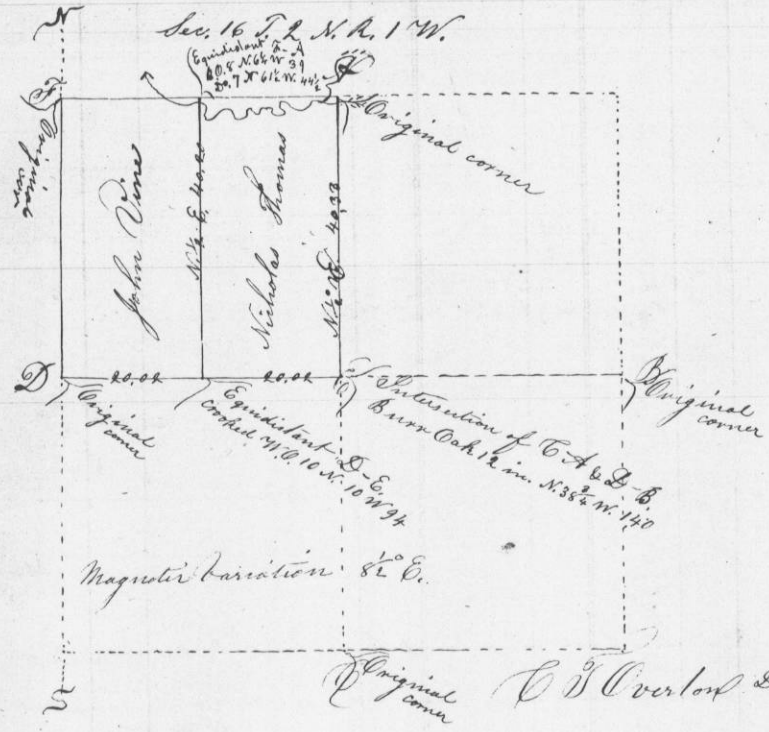 N
Sec. 16 T. 2 N. R. 1 W.
Equidistant F-A
B.O. 8 N. 6¼ W 39
Do. 7 N 61½ W. 44½
A
F
Original corner
Original
cor
John Vine
N ½ E. 40,20
Nicholas Thomas
N ½° E 40,33
D
20.02
20.02
E
B
Original
corner
Original
corner
Equidistant D-E.
crooked W.O. 10 N. 10 W 94
Intersection of C A & D-B.
Burr Oak 12 in. N. 38¾ W. 140
Magnetic Variation 8½° E.
S
C
Original
corner
C S Overton